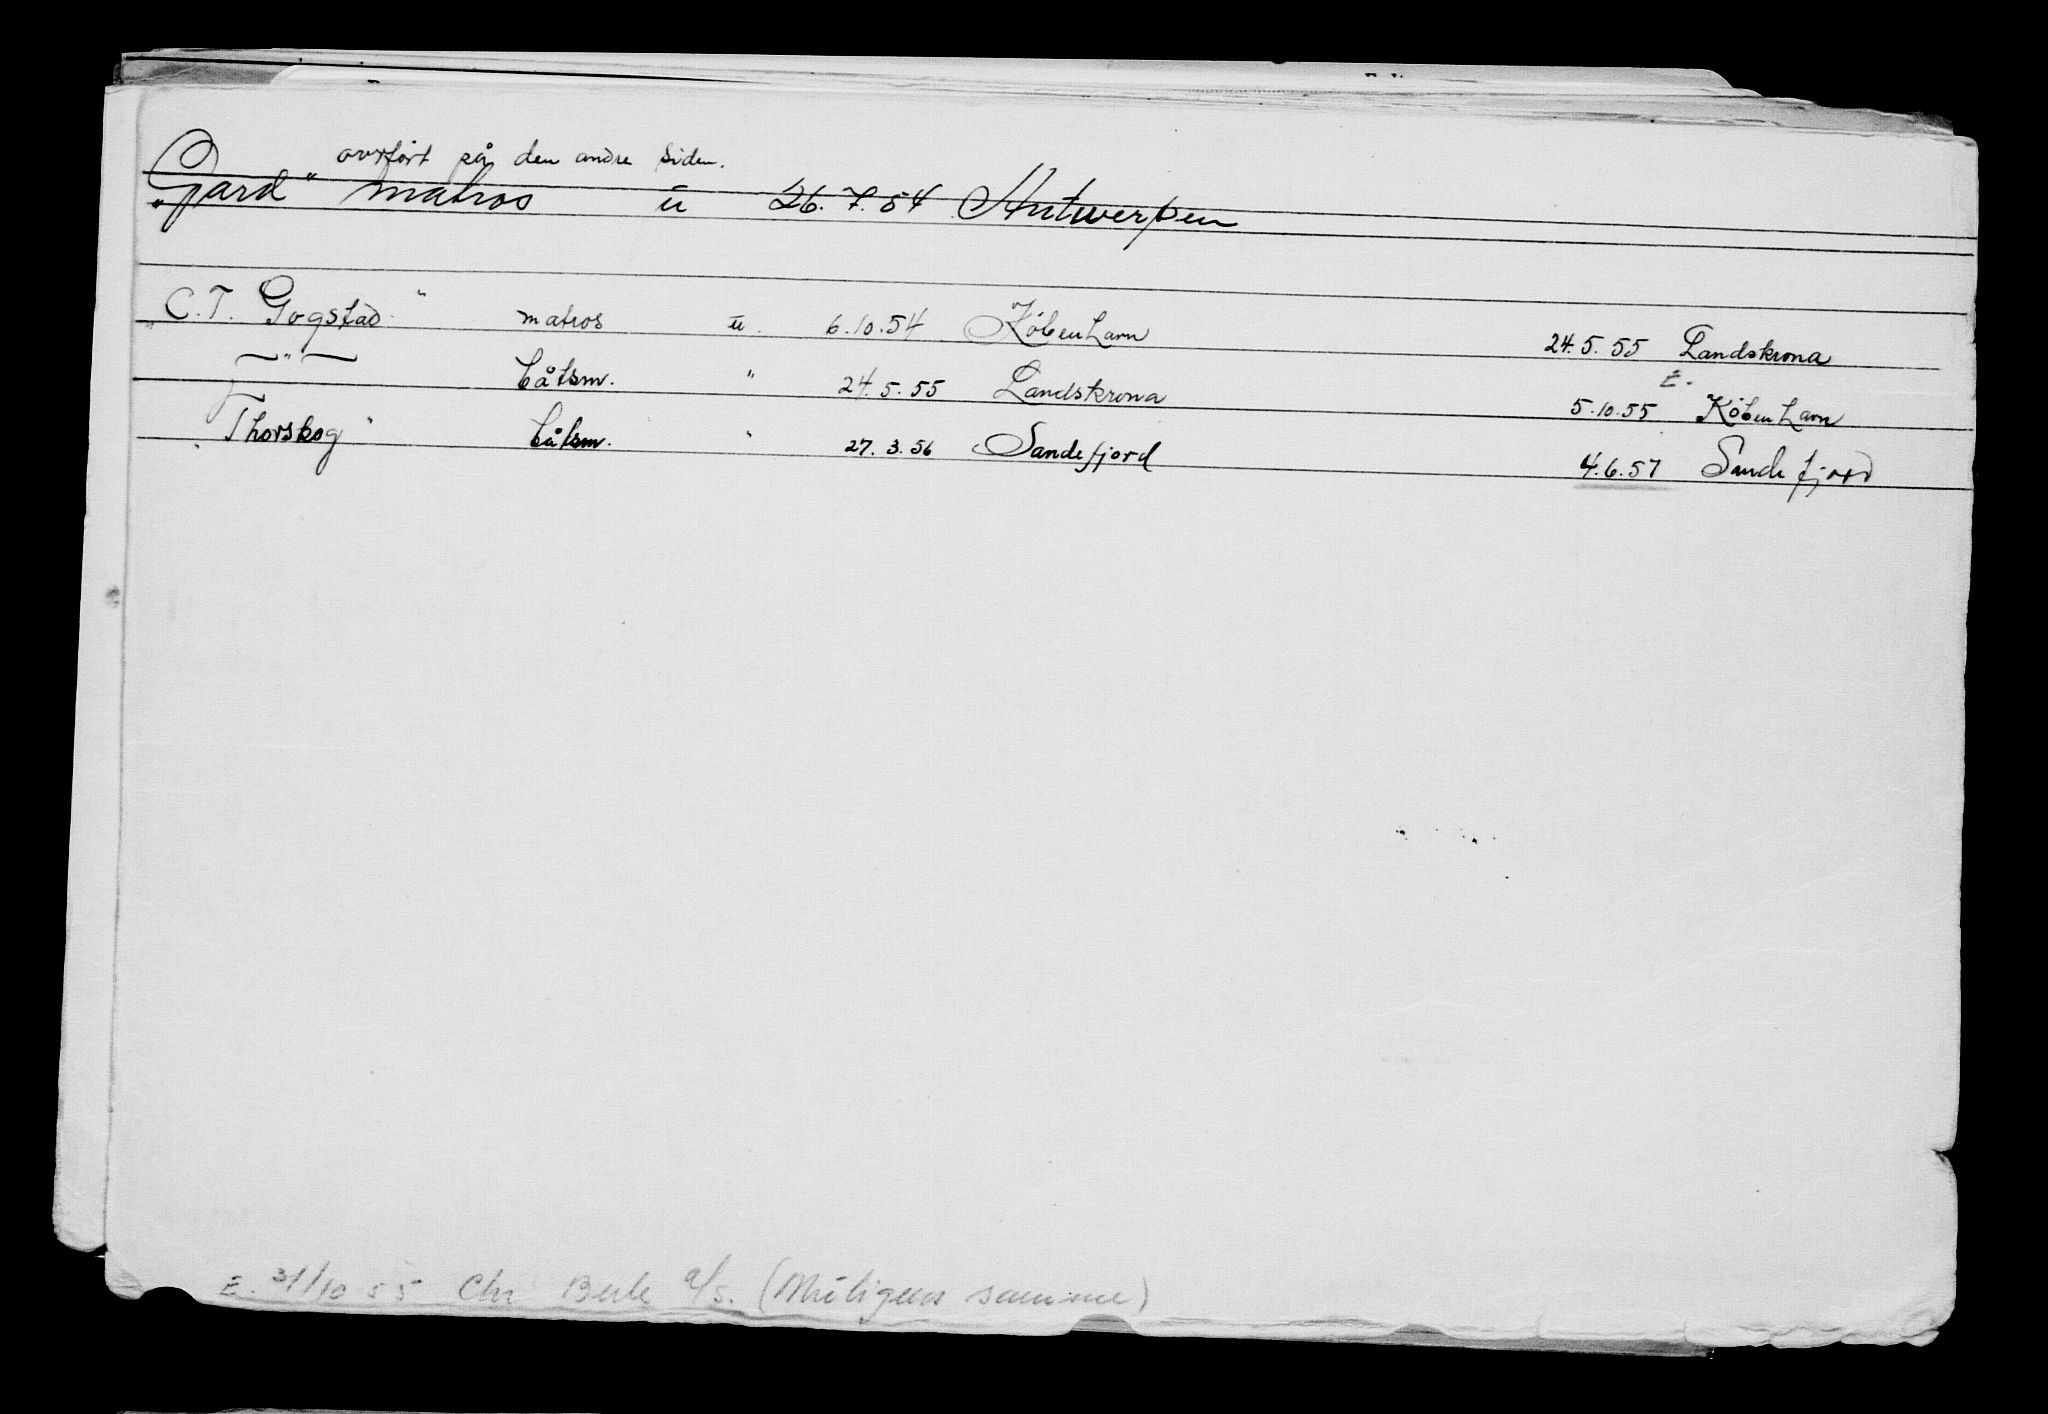 overført på den andre siden.
"Gard" matros u 26.7.54 Antwerpen
"C.T. Gogstad" matros u. 6.10.54 København 24.5.55 Landskrona
—"— båtsm. " 24.5.55 Landskrona E. 5.10.55 København
"Thorskog" båtsm. " 27.3.56 Sandefjord 4.6.57 Sandefjord
E. 31/10 55 Chr a/s. (Muligens samme)